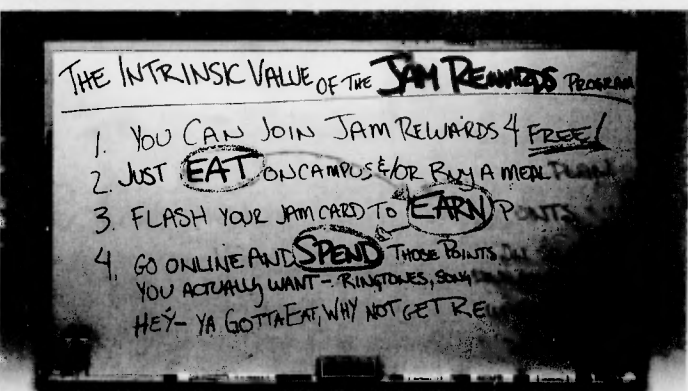 THE INTRINSIC VALUE OF THE JAM REWARDS PROGRAM
1. YOU CAN JOIN JAM REWARDS 4 FREE!
2. JUST EAT ON CAMPUS &/OR BUY A MEAL PLAN
3. FLASH YOUR JAM CARD TO EARN POINTS
4. GO ONLINE AND SPEND THOSE POINTS
YOU ACTUALLY WANT - RINGTONES, SONG
HEY - YA GOTTA EAT, WHY NOT GET